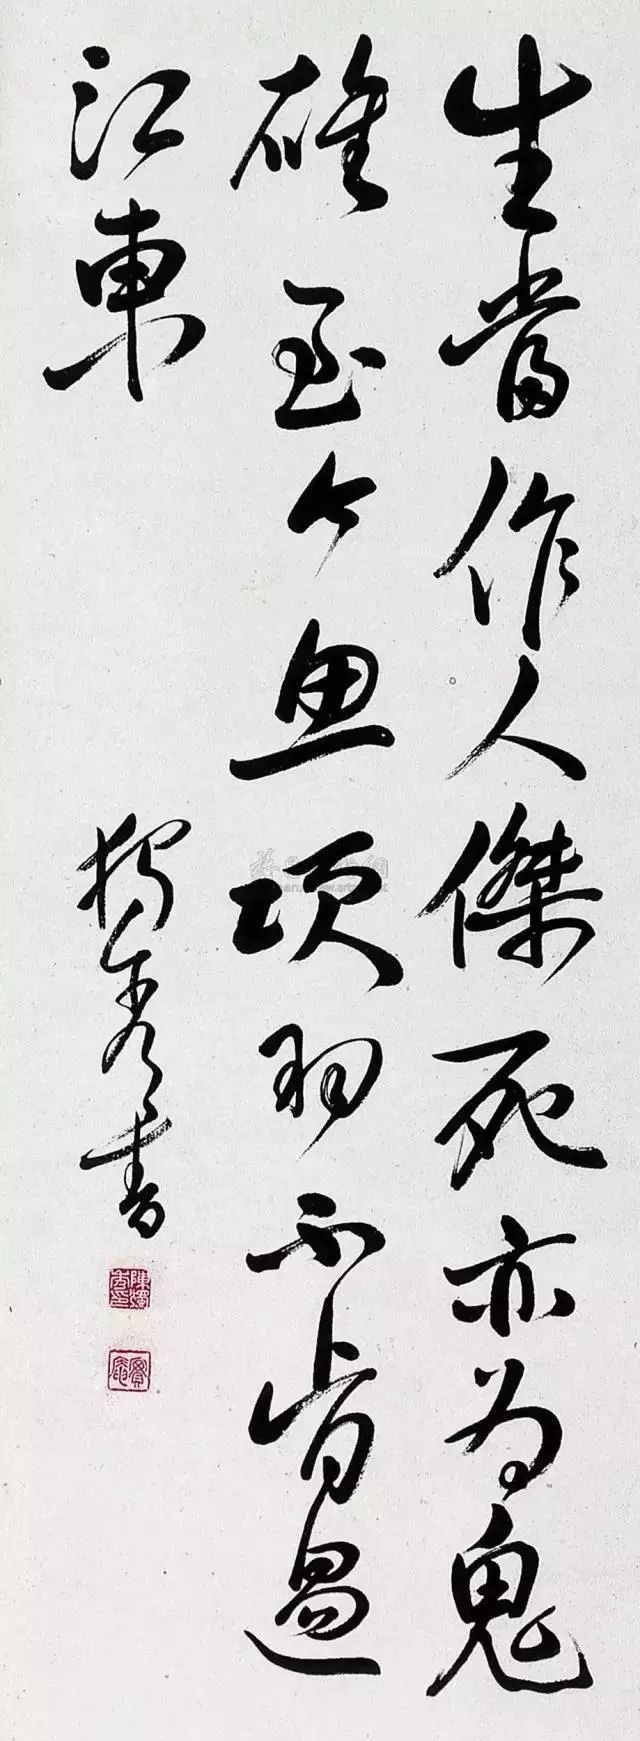 生當作人傑死亦為鬼
雄至今思項羽不肯過
江東
獨秀書